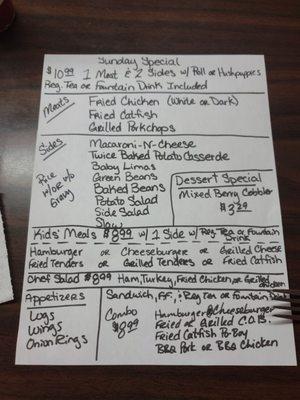 Sunday Special
$10.99 1 Meat & 2 Sides w/ Roll or Hushpuppies
Reg. Tea or Fountain Drink Included
Meats
Fried Chicken (White or Dark)
Fried Catfish
Grilled Porkchops
Sides
Rice
w/ or w/o
Gravy
Macaroni-N-Cheese
Twice Baked Potato Casserole
Baby Limas
Green Beans
Baked Beans
Potato Salad
Side Salad
Slaw
Dessert Special
Mixed Berry Cobbler
$3.29
Kids' Meals $8.99 w/ 1 Side w/ Reg. Tea or Fountain Drink
Hamburger or Cheeseburger or Grilled Cheese
Fried Tenders or Grilled Tenders or Fried Catfish
Chef Salad $8.99 Ham, Turkey, Fried Chicken or Grilled Chicken
Appetizers
Logs
Wings
Onion Rings
Sandwich, F.F., & Reg Tea or Fountain Drink
Combo
$8.99
Hamburger or Cheeseburger
Fried or Grilled C.O.B.
Fried Catfish Po-Boy
BBQ Pork or BBQ Chicken